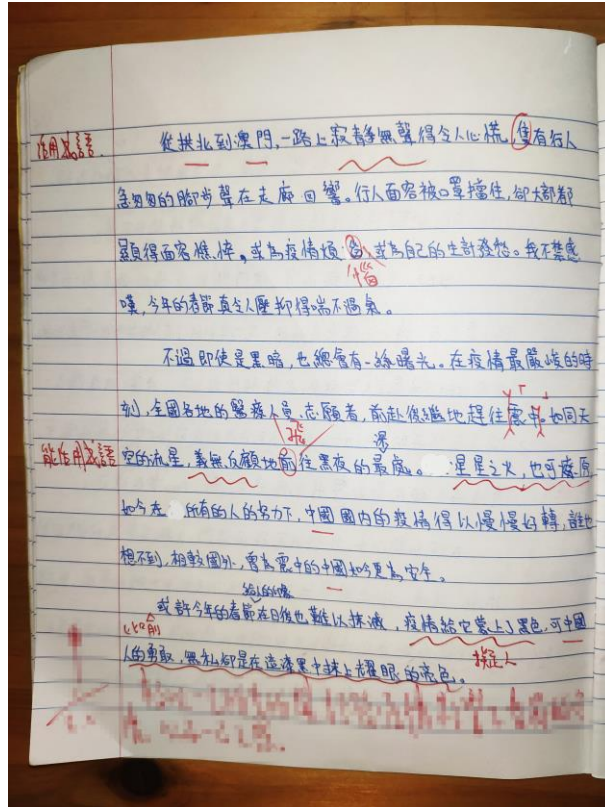 活用成語.
從拱北到澳門,一路上寂靜無聲得令人心慌,隻有行人
急匆匆的腳步聲在走廊回響。行人面容被口罩擋住,卻大部都
顯得面容憔悴。或為疫情煩 或為自己的生計發愁。我不禁感
惱
嘆,今年的春節真令人壓抑得喘不過氣。
不過即使是黑暗,也總會有一絲曙光。在疫情最嚴峻的時
刻,全國各地的醫療人員、志願者,前赴後繼地趕往 如同天
能活用成語
空的流星,義無反顧地前往黑夜的最處。星星之火,也可燎原
深
如今在 所有的人的努力下,中國國內的疫情得以慢慢好轉,誰也
想不到,相較國外,曾為震中的中國如今更為安全。
給人的印象
或許今年的春節在日後也難以抹滅,疫情給它蒙上了黑色,可中國
人的勇敢,無私卻是在這漆黑中抹上耀眼的亮色。
擬人